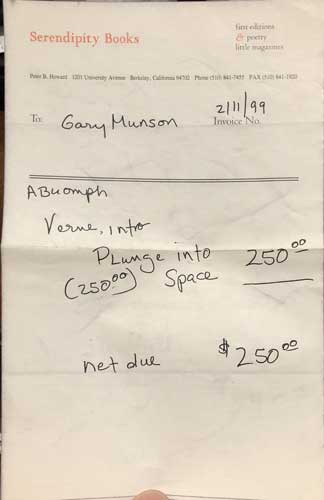 Serendipity Books
first editions
& poetry
little magazines
Peter B. Howard 1201 University Avenue Berkeley, California 94702 Phone (510) 841-7455 FAX (510) 841-1920
To: Gary Munson
2/11/99
Invoice No.
Verne, intro
Plunge into 250.00
(250.00) Space
net due $250.00